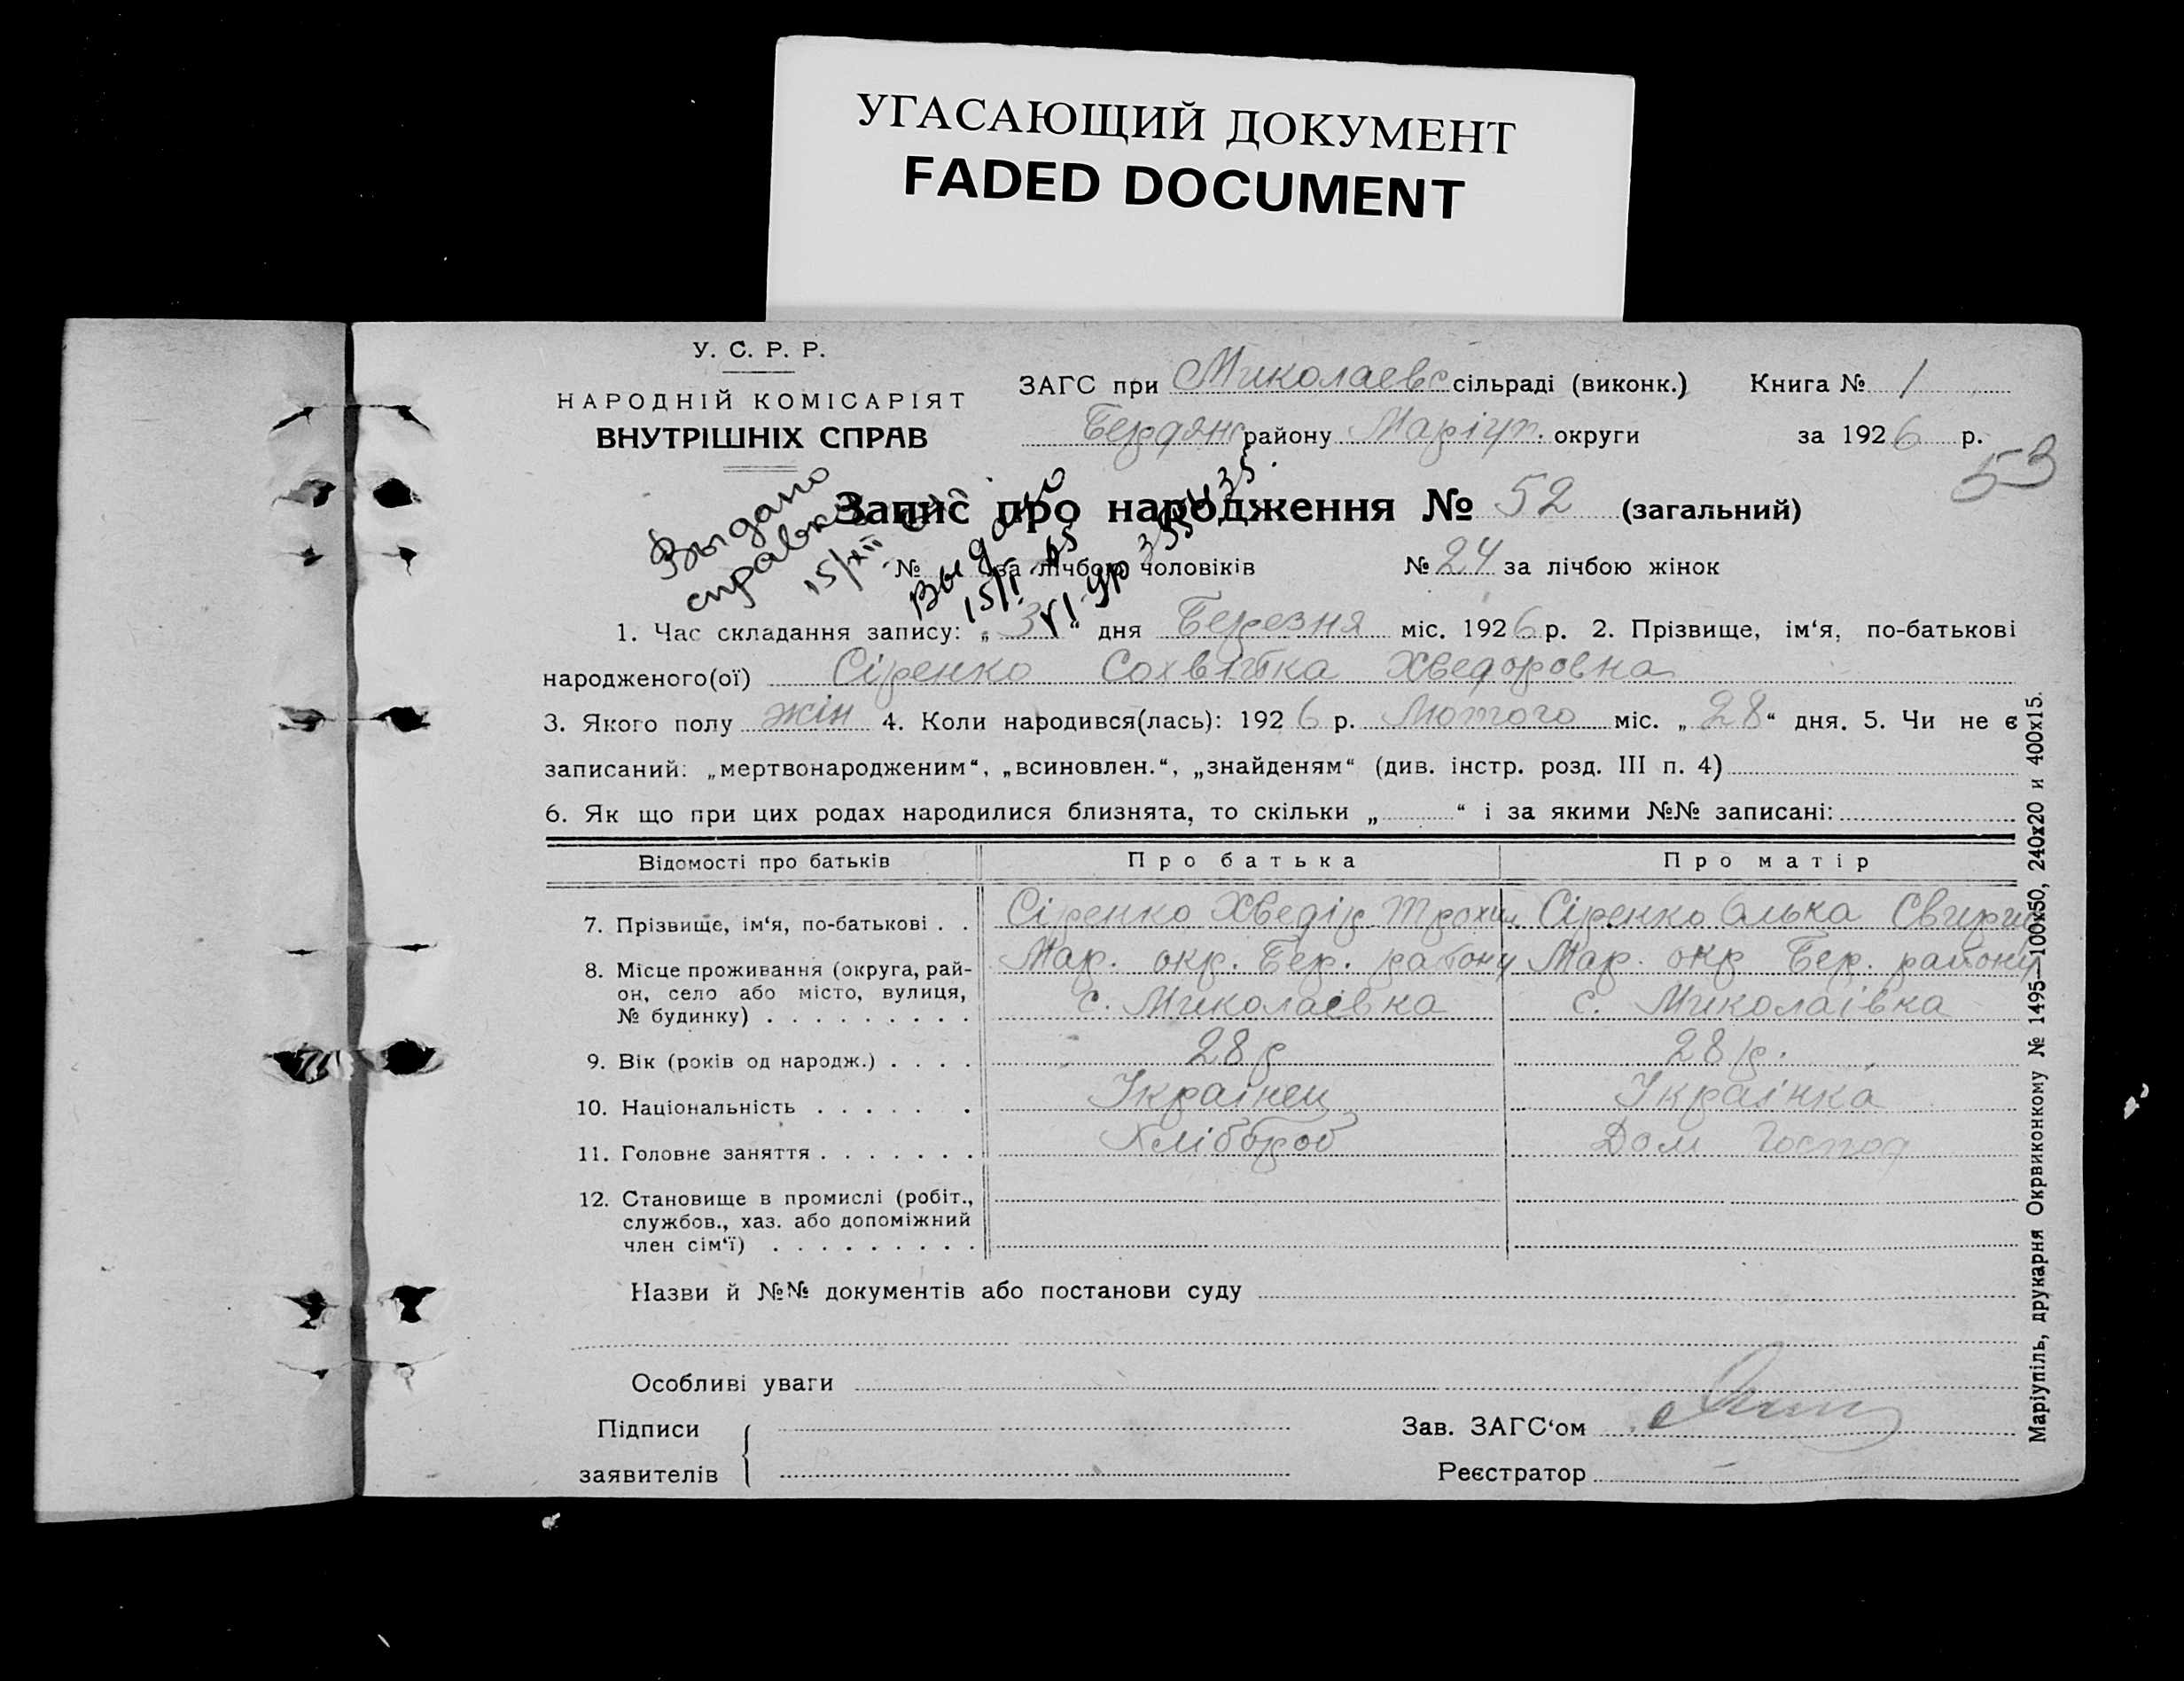 УГАСАЮЩИЙ ДОКУМЕНТ
FADED DOCUMENT
У. С. Р. Р.
НАРОДНІЙ КОМІСАРІЯТ
ВНУТРІШНІХ СПРАВ
ЗАГС при Миколаевс сільраді (виконк.) Книга № 1
Бердянс району Маріуп. округи за 1926 р.
53
Запис про народження № 52 (загальний)
Выдано
справка
15/XII
Выдано
15/I 65
№ за лічбою чоловіків № 24 за лічбою жінок
1. Час складання запису: „3“ дня Березня міс. 1926 р. 2. Прізвище, ім‘я, по-батькові
народженого(ої) Сіренко Сохвітка Хведоровна
3. Якого полу жін 4. Коли народився(лась): 1926 р. Лютого міс. „28“ дня. 5. Чи не є
записаний: „мертвонародженим“, „всиновлен.“, „знайденям“ (див. інстр. розд. III п. 4)
6. Як що при цих родах народилися близнята, то скільки „ “ і за якими №№ записані:
Відомості про батьків Про батька Про матір
7. Прізвище, ім‘я, по-батькові . . Сіренко Хведір Трохим Сіренко Олька Свирид
8. Місце проживання (округа, рай- Мар. окр. Бер. району Мар. окр Бер. району
он, село або місто, вулиця, с. Миколаєвка с. Миколаівка
№ будинку) . . . . . . . . .
9. Вік (років од народж.) . . . . 28 р 28 р.
10. Національність . . . . . . Українец Українка
11. Головне заняття . . . . . . . Хлібороб Дом Господ
12. Становище в промислі (робіт.,
службов., хаз. або допоміжний
член сім‘ї) . . . . . . . . .
Назви й №№ документів або постанови суду
Особливі уваги
Підписи Зав. ЗАГС‘ом
заявителів Реєстратор
Маріупіль, друкарня Окрвиконкому № 1495—100х50, 240х20 и 400х15.